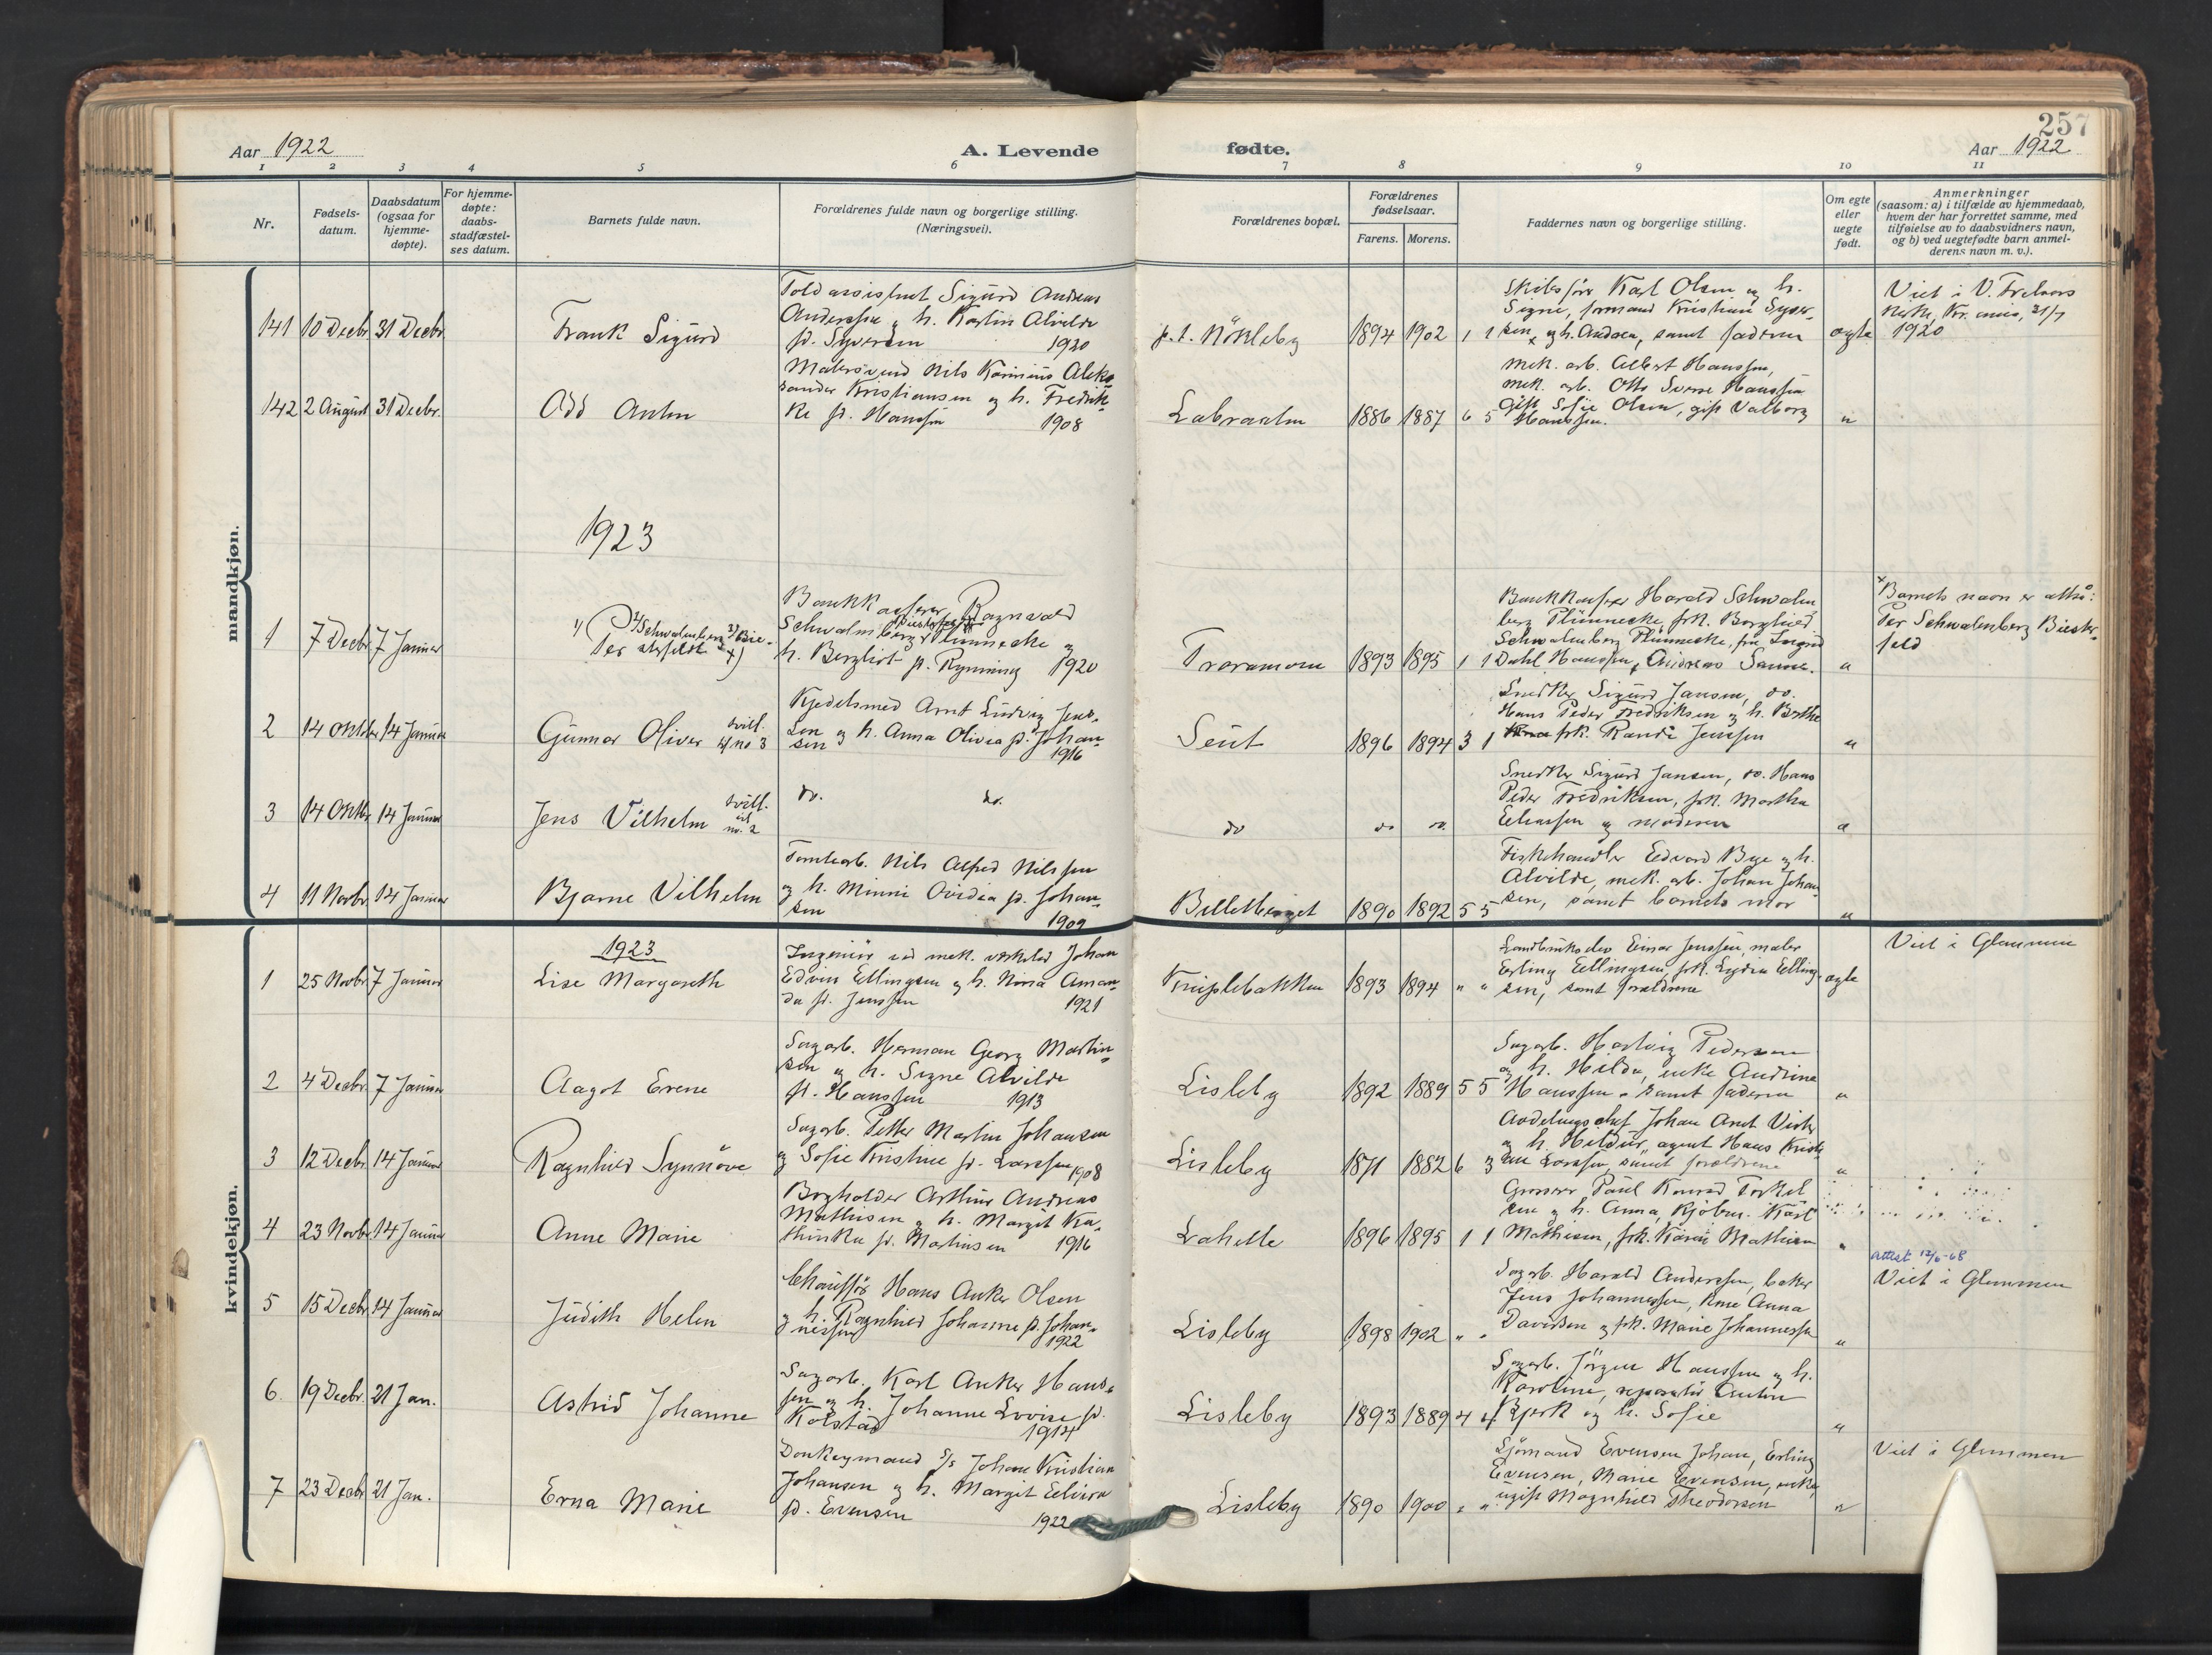 257
Aar 1922
A. Levende
fødte.
Aar 1922
1 2 3 4 5 6 7 8 9 10 11
Nr.
Fødsels-
datum.
Daabsdatum
(ogsaa for
hjemme-
døpte).
For hjemme-
døpte:
daabs-
stadfæstel-
ses datum.
Barnets fulde navn.
Forældrenes fulde navn og borgerlige stilling.
(Næringsvei).
Forældrenes bopæl.
Forældrenes
fødselsaar.
Farens. Morens.
Faddernes navn og borgerlige stilling.
Om egte
eller
uegte
født.
Anmerkninger
(saasom: a) i tilfælde av hjemmedaab,
hvem der har forrettet samme, med
tilføielse av to daabsvidners navn,
og b) ved uegtefødte barn anmel-
derens navn m. v.).
mandkjøn.
141 10 Decbr. 31 Decbr.
Frank Sigurd
Toldassistent Sigurd Andreas
Anderssen og h. Karlin Alvilde
f. Syversen 1920
p.t. Nökleby 1894 1902 1 1
Skibsfør Karl Olsen og h.
Signe, formand Kristian Syver-
sen og h. Andrea, samt faderen
egte
Viet i V. Fredriks
kirke, Kr. ania, 31/7
1920
142 2 August 31 Decbr.
Odd Anton
Malersvend Nils Karinius Alek-
sander Kristiansen og h. Fredrik-
ke f. Hanssen 1908
Labraaten 1886 1887 6 5
Mek. arb. Albert Hanssen,
mek. arb. Otto Sverre Hanssen
gift Sofie Olsen, gift Valborg
Hanssen.
"
1923
1 7 Decbr 7 Januar
1) Per 2) Schwalenberg 3) Bie-
sterfeldt x)
Bankkasserer Ragnvald
Schwalenberg Plünnecke og
h. Bergliot f. Rynning 1920
Traramoen 1893 1895 1 1
Bankkasserer Harald Schwalen
berg Plünnecke, frk. Borghild
Schwalenberg Plünnecke, fru Ingrid
Dahl Hanssen, Andreas Sanne.
"
x Barnets navn er altså:
Per Schwalenberg Biester-
feld
2 14 Oktober 14 Januar
Gunnar Oliver tvill. til no 3
Kjedelsmed Arnt Ludvig Jens-
sen og h. Anna Olivia f. Johan-
sen 1916
Seut 1896 1894 3 1
Snedker Sigurd Jansen, do.
Hans Peder Fredriksen og h. Berthe
frk. Randi Jenssen
"
3 14 Oktbr 14 Januar
Jens Vilhelm tvill. til no. 2
do. do.
do do do.
Snedker Sigurd Jansen, do. Hans
Peder Fredriksen, frk. Martha
Eliassen og moderen
"
4 11 Novbr. 14 Januar
Bjarne Vilhelm
Tomtearb. Nils Alfred Nilssen
og h. Minni Ovidia f. Johan-
sen 1909
Belletberget 1890 1892 5 5
Fiskehandler Edvard Bye og h.
Alvilde, mek. arb. Johan Johan-
sen, samt barnets mor
"
kvindekjøn.
1923
1 25 Novbr 7 Januar
Lise Margareth
Ingeniör ved mek. verksted Johan
Edvin Ellingsen og h. Nina Aman-
da f. Janssen 1921
Kniplebakken 1893 1894 " "
Landbrukselev Einar Jenssen, maler
Erling Ellingsen, frk. Lydia Elling-
sen, samt forældrene
egte
Viet i Glemmen
2 4 Decbr. 7 Januar
Aagot Erene
Sagarb. Herman Georg Martin-
sen og h. Signe Alvilde
f. Hanssen 1913
Lisleby 1892 1889 5 5
Sagarb. Hartvig Pedersen
og h. Hilda, enke Andrine
Hanssen, samt faderen
"
3 12 Decbr. 14 Januar
Ragnhild Synnöve
Sagarb. Petter Martin Johansen
og Sofie Kristine f. Larssen 1908
Lisleby 1871 1882 6 3
Avdelingschef Johan Arnt Vister
og h. Hildur, agent Hans Kristi-
an Larssen, samt forældrene
"
4 23 Novbr 14 Januar
Anne Marie
Bogholder Arthur Andreas
Mathisen og h. Margit Ka-
thinka f. Martinsen 1916
Lahelle 1896 1895 1 1
Grosserer Paul Konrad Torkel
sen og h. Anna, Kjöbm. Karl
Mathisen, frk. Karin Mathisen
"
5 15 Decbr 14 Januar
Judith Helen
Chauffør Hans Anker Olsen
og h. Ragnhild Johanne f. Johan-
nessen 1922
Lisleby 1898 1902 " "
Sagarb. Harald Anderssen, baker
Jens Johannessen, kone Anna
Davidsen og frk. Marie Johannessen
"
Attest 12/6-68
Viet i Glemmen
6. 19 Decbr. 21 Jan.
Astrid Johanne
Sagarb. Karl Anker Hans-
sen og h. Johanne Lovise f.
Kolstad 1914
Lisleby 1893 1889 4 4
Sagarb. Jörgen Hanssen og h.
Karoline, reparatör Anton
Bjerk og h. Sofie
"
7 23 Decbr 21 Jan.
Erna Marie
Donkeymand S/S Johan Kristian
Johansen og h. Margit Elvira
f. Evensen 1922
Lisleby 1890 1900 " "
Sjömand Evensen Johan, Erling
Evensen, Marie Evensen, enke,
ugift Magnhild Theodorsen
"
Viet i Glemmen